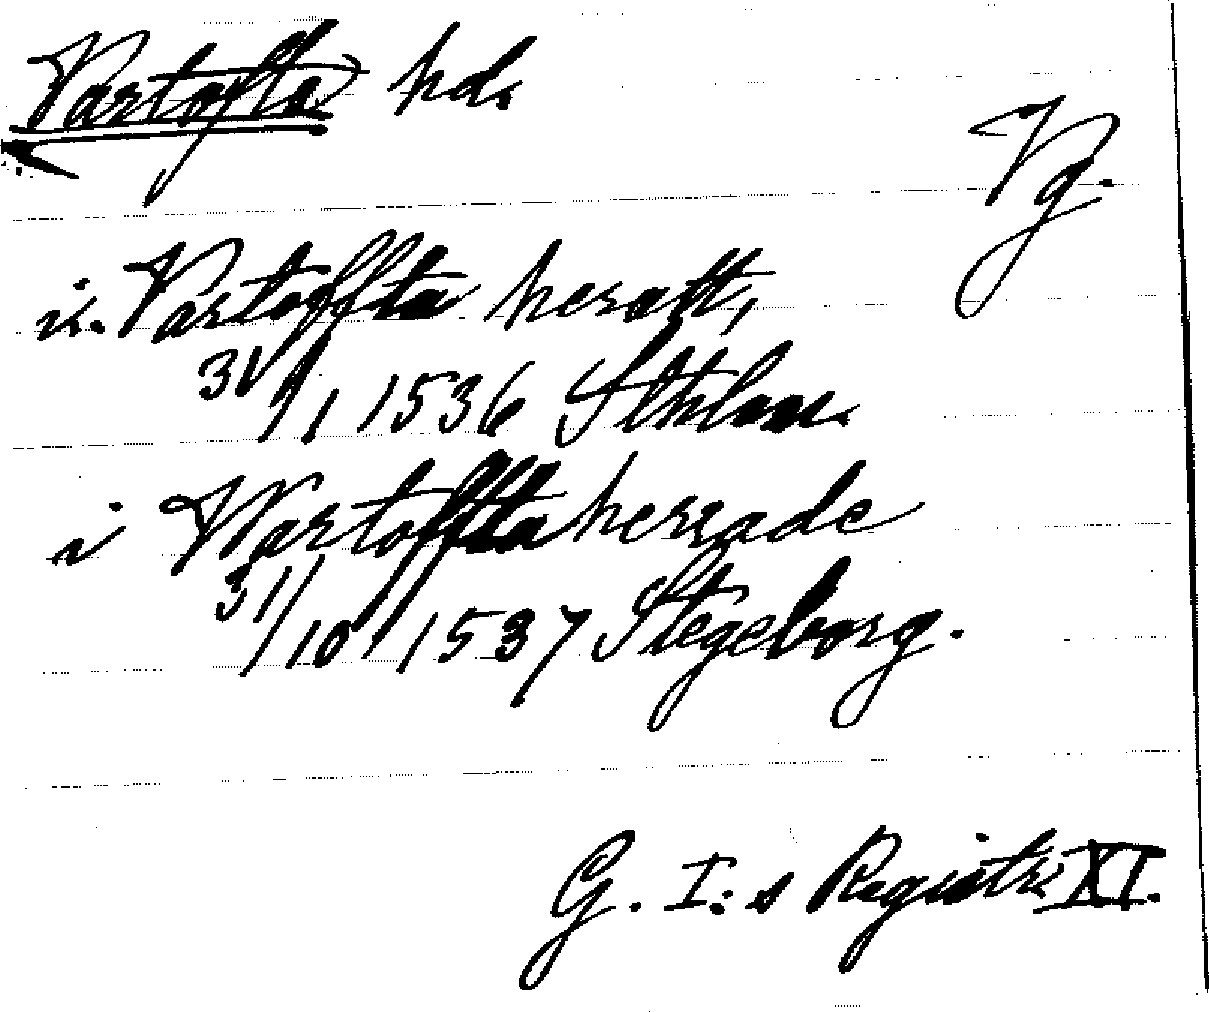 Vartofta hd.
Vg.
i Vartoffta heratt,
31/1 1536 Sthlm.
i Wartoffta herrade
31/10 1537 Stegeborg.
G. I:s Registr. XI.